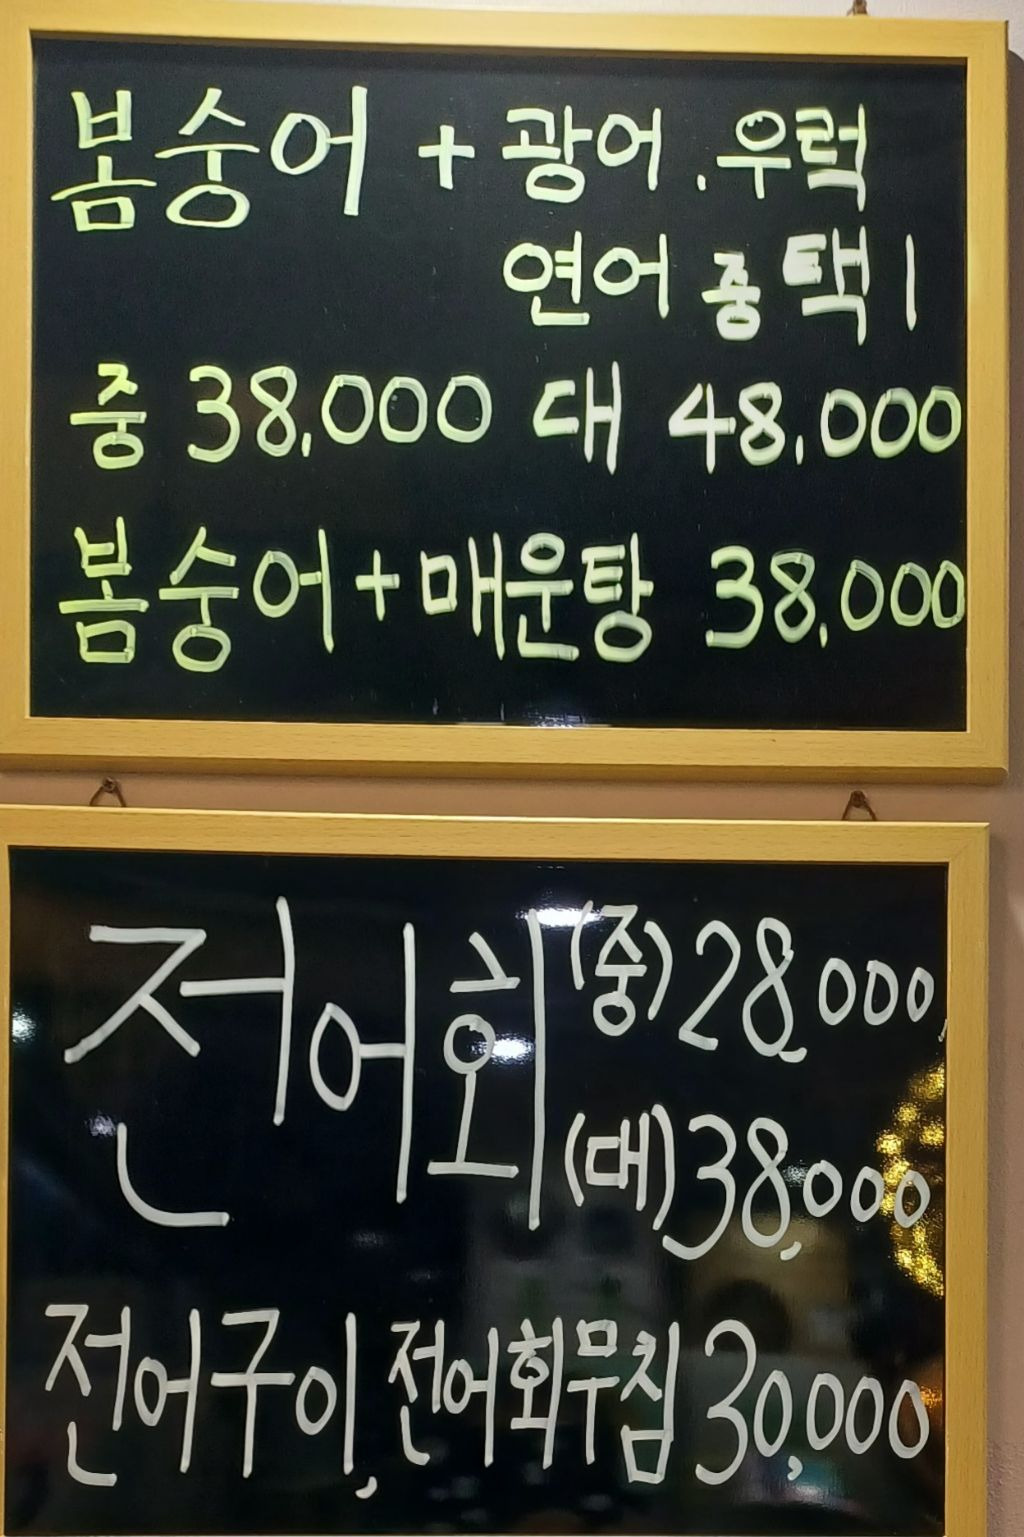 봄숭어 + 광어.우럭
연어 중 택 1
중 38,000 대 48,000
봄숭어+매운탕 38,000
전어회 (중) 28,000
(대) 38,000
전어구이, 전어회무침 30,000